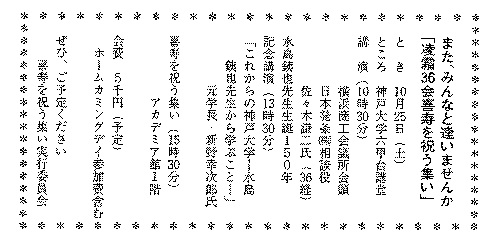 また、みんなと逢いませんか
「凌霜36会喜寿を祝う集い」
とき 10月25日（土）
ところ 神戸大学六甲台講堂
講演（10時30分）
横浜商工会議所会頭
日本発条㈱相談役
佐々木謙二氏（36経）
水島銕也先生生誕150年
記念講演（13時30分）
「これからの神戸大学－水島
銕也先生から学ぶこと…」
元学長・新野幸次郎氏
喜寿を祝う集い（15時30分）
アカデミア館1階
会費 5千円（予定）
ホームカミングデイ参加費含む
ぜひ、ご予定ください
喜寿を祝う集い実行委員会